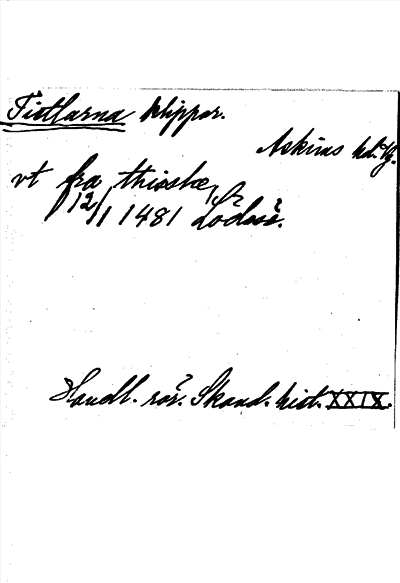 Tistlarna klippar.
Askims hd. Bg.
vt fra thisslæ
12/11 1481 Lödöse.
Handl. rör. Skand. hist. XXIX.